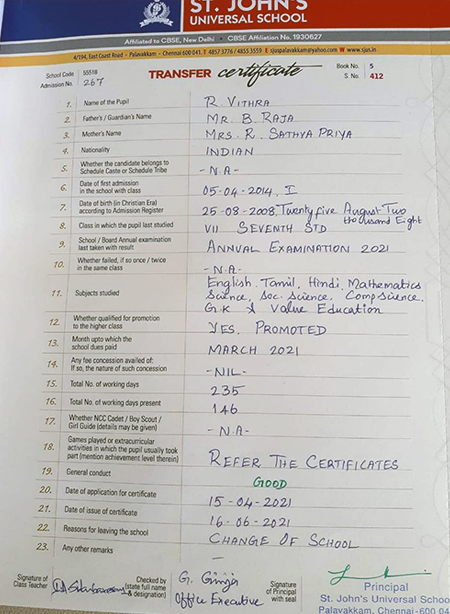 ST. JOHN'S
UNIVERSAL SCHOOL
Affiliated to CBSE, New Delhi • CBSE Affiliation No. 1930627
4/194, East Coast Road - Palavakkam - Chennai 600 041. T 4857 3776 / 4855 3559 E sjuspalavakkam@yahoo.com W www.sjus.in
School Code 55518 Book No. 5
TRANSFER certificate
Admission No. 267 S. No. 412
1. Name of the Pupil R. VITHRA
2. Father's / Guardian's Name MR. B. RAJA
3. Mother's Name MRS. R. SATHYA PRIYA
4. Nationality INDIAN
5. Whether the candidate belongs to
Schedule Caste or Schedule Tribe -N.A-
6. Date of first admission
in the school with class 05-04-2014, I
7. Date of birth (in Christian Era)
according to Admission Register 25-08-2008, Twenty five August Two
thousand Eight
8. Class in which the pupil last studied VII SEVENTH STD
9. School / Board Annual examination
last taken with result ANNUAL EXAMINATION 2021
10. Whether failed, if so once / twice
in the same class -N.A-
11. Subjects studied English, Tamil, Hindi, Mathematics
Science, Soc. Science, Comp Science,
G.K & Value Education
12. Whether qualified for promotion
to the higher class YES, PROMOTED
13. Month upto which the
school dues paid MARCH 2021
14. Any fee concession availed of:
If so, the nature of such concession -NIL-
15. Total No. of working days 235
16. Total No. of working days present 146
17. Whether NCC Cadet / Boy Scout /
Girl Guide (details may be given) -N.A-
18. Games played or extracurricular
activities in which the pupil usually took
part (mention achievement level therein) REFER THE CERTIFICATES
19. General conduct GOOD
20. Date of application for certificate 15-04-2021
21. Date of issue of certificate 16-06-2021
22. Reasons for leaving the school CHANGE OF SCHOOL
23. Any other remarks —
Signature of
Class Teacher
Checked by
(state full name
& designation)
Office Executive
Signature
of Principal
with seal
Principal
St. John's Universal Schoo
Palavakkam, Chennai-600 04